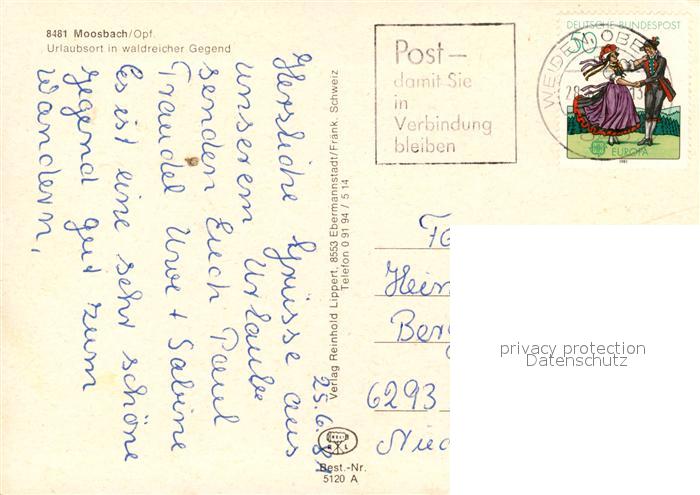 8481 Moosbach/Opf.
Urlaubsort in waldreicher Gegend
25.6.81
Herzliche Grüsse aus
unserem Urlaube
senden Euch Paul
Traudel Uwe + Sabine
Es ist eine sehr schöne
Gegend gut zum
Wandern,
Verlag Reinhold Lippert, 8553 Ebermannstadt/Fränk. Schweiz
Telefon 0 91 94 / 5 14
Best.-Nr.
5120 A
Post—
damit Sie
in
Verbindung
bleiben
WEIDEN OBE
28
DEUTSCHE BUNDESPOST
50
EUROPA
1981
Hein
Berg
6293
Nied
privacy protection
Datenschutz